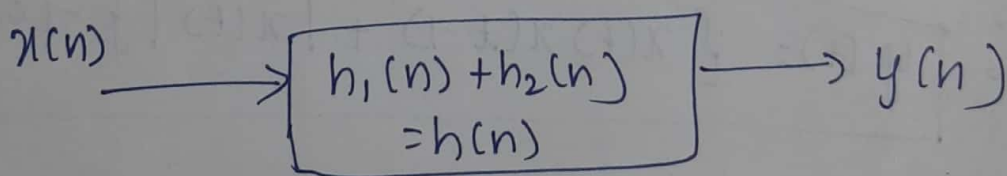 x(n)
h₁(n) + h₂(n)
= h(n)
y(n)